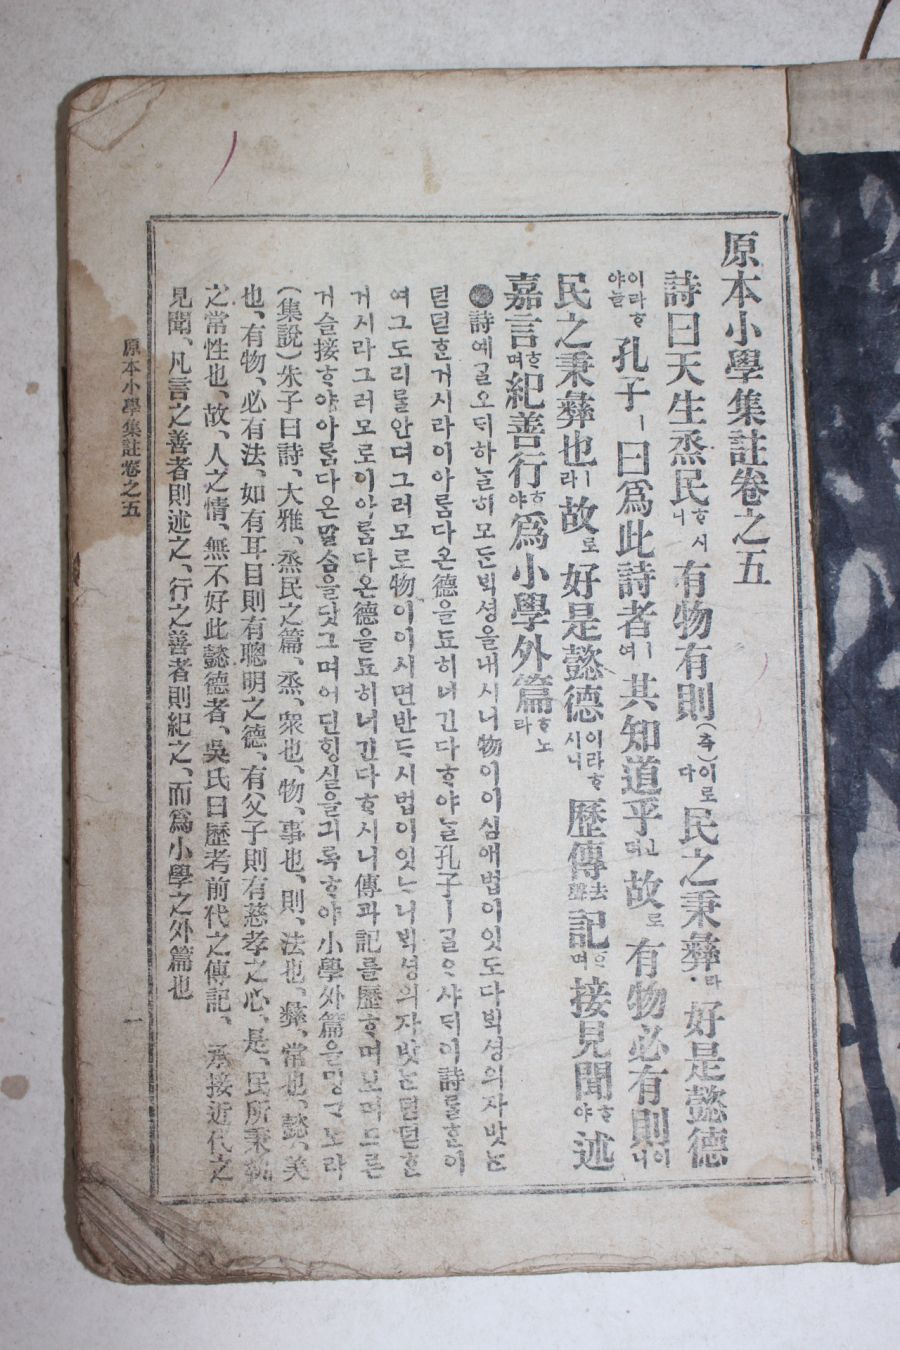 原本小學集註卷之五
詩曰天生烝民ᄒᆞ시니有物有則(측)이로다民之秉彛라好是懿德
이라ᄒᆞ야ᄂᆞᆯ孔子ㅣ曰爲此詩者ㅣ여其知道乎ᅟᅵᆫ뎌故로有物必有則이니
民之秉彛也ㅣ라故로好是懿德이라ᄒᆞ시니歷傳去聲記ᄒᆞ며接見聞ᄒᆞ야述
嘉言ᄒᆞ며紀善行ᄒᆞ야爲小學外篇ᄒᆞ노라
●詩예ᄀᆞᆯ오ᄃᆡ하ᄂᆞᆯ히모ᄃᆞᆫᄇᆡᆨ셩을내시니物이이심애법이잇도다ᄇᆡᆨ셩의자밧ᄂᆞᆫ
덛덛ᄒᆞᆫ거시라이아ᄅᆞᆷ다온德을됴히너긴다ᄒᆞ야ᄂᆞᆯ孔子ㅣᄀᆞᆯᄋᆞ샤ᄃᆡ이詩ᄅᆞᆯᄒᆞᆫ이
여그도리ᄅᆞᆯ안뎌그러모로物이이시면반ᄃᆞ시법이잇ᄂᆞ니ᄇᆡᆨ셩의자밧ᄂᆞᆫ덛덛ᄒᆞᆫ
거시라그러모로이아ᄅᆞᆷ다온德을됴히너긴다ᄒᆞ시니傳과記ᄅᆞᆯ歷ᄒᆞ며보며드른
거슬接ᄒᆞ야아ᄅᆞᆷ다온말ᄉᆞᆷ을닷그며어딘ᄒᆡᆼ실을긔록ᄒᆞ야小學外篇을ᄆᆡᆼᄀᆞ노라
(集說)朱子曰詩、大雅、烝民之篇、烝、衆也、物、事也、則、法也、彛、常也、懿、美
也、有物、必有法、如有耳目則有聰明之德、有父子則有慈孝之心、是、民所秉執
之常性也、故、人之情、無不好此懿德者、吳氏曰歷考前代之傳記、承接近代之
見聞、凡言之善者則述之、行之善者則紀之、而爲小學之外篇也
原本小學集註卷之五
一